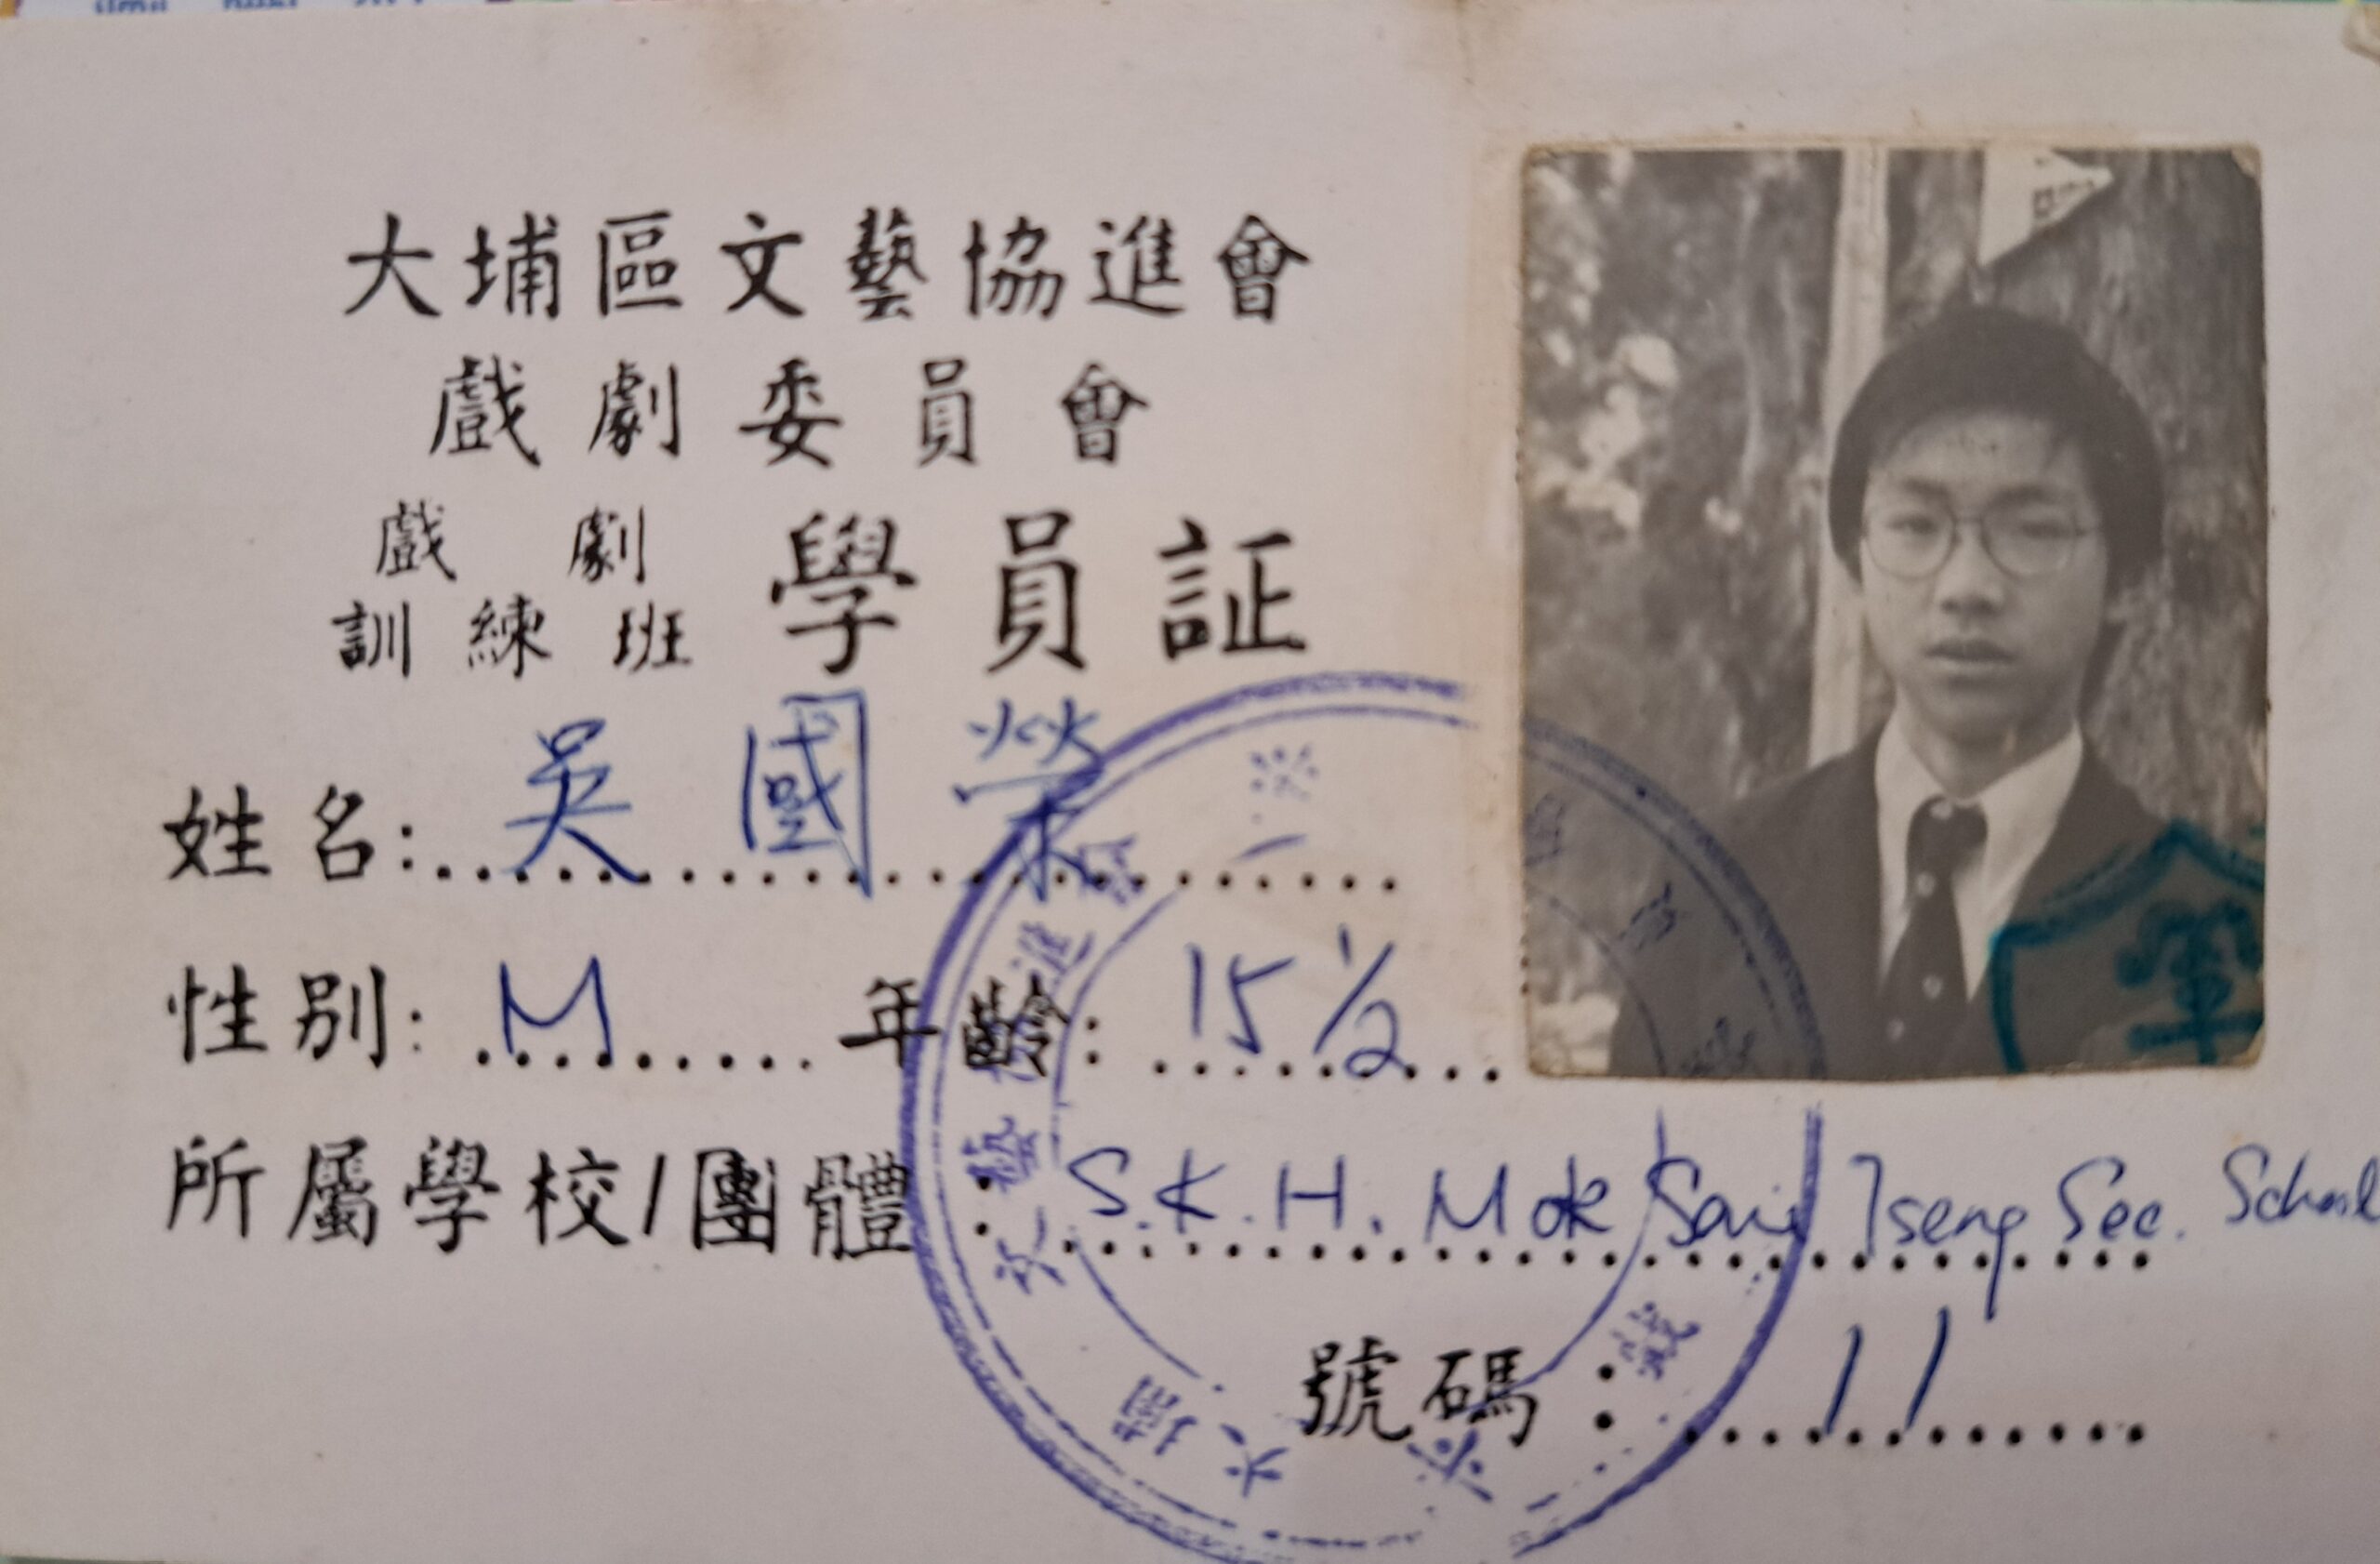 大埔區文藝協進會
戲劇委員會
戲劇
訓練班
學員証
姓名: 吳國榮
性別: M 年齡: 15 1/2
所屬學校/團體: S.K.H. Mok Sau Tseng Sec. School
號碼: 11
大埔文藝協進會